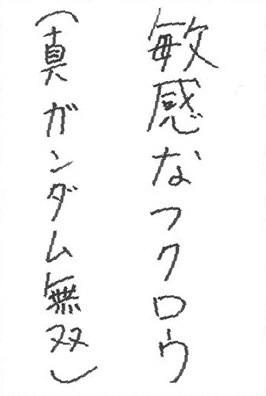 敏感なフクロウ
（真ガンダム無双）